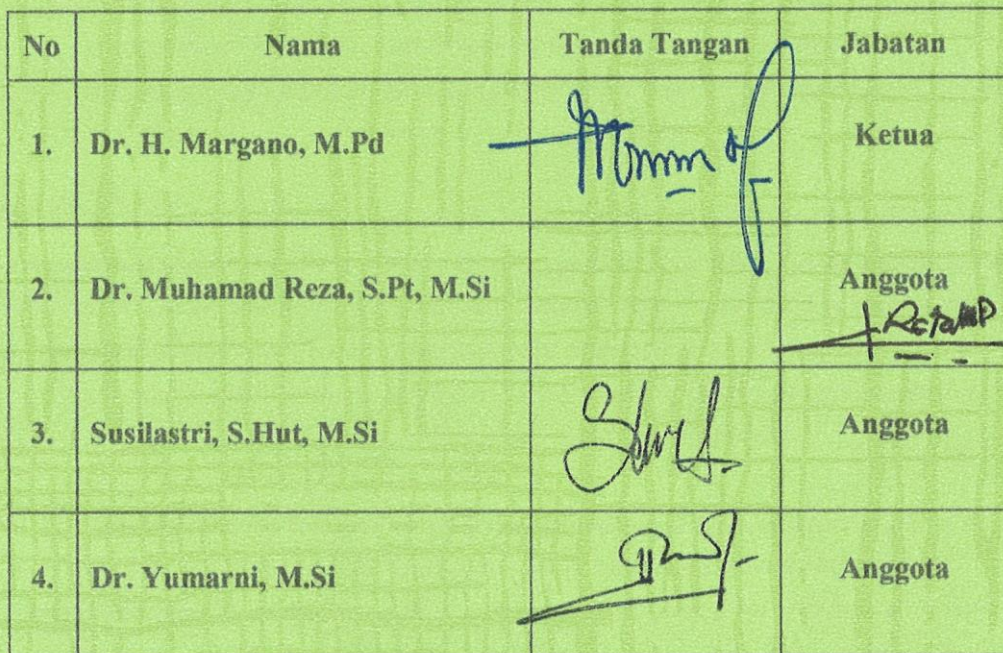 No Nama Tanda Tangan Jabatan
1. Dr. H. Margano, M.Pd Ketua
2. Dr. Muhamad Reza, S.Pt, M.Si Anggota
3. Susilastri, S.Hut, M.Si Anggota
4. Dr. Yumarni, M.Si Anggota